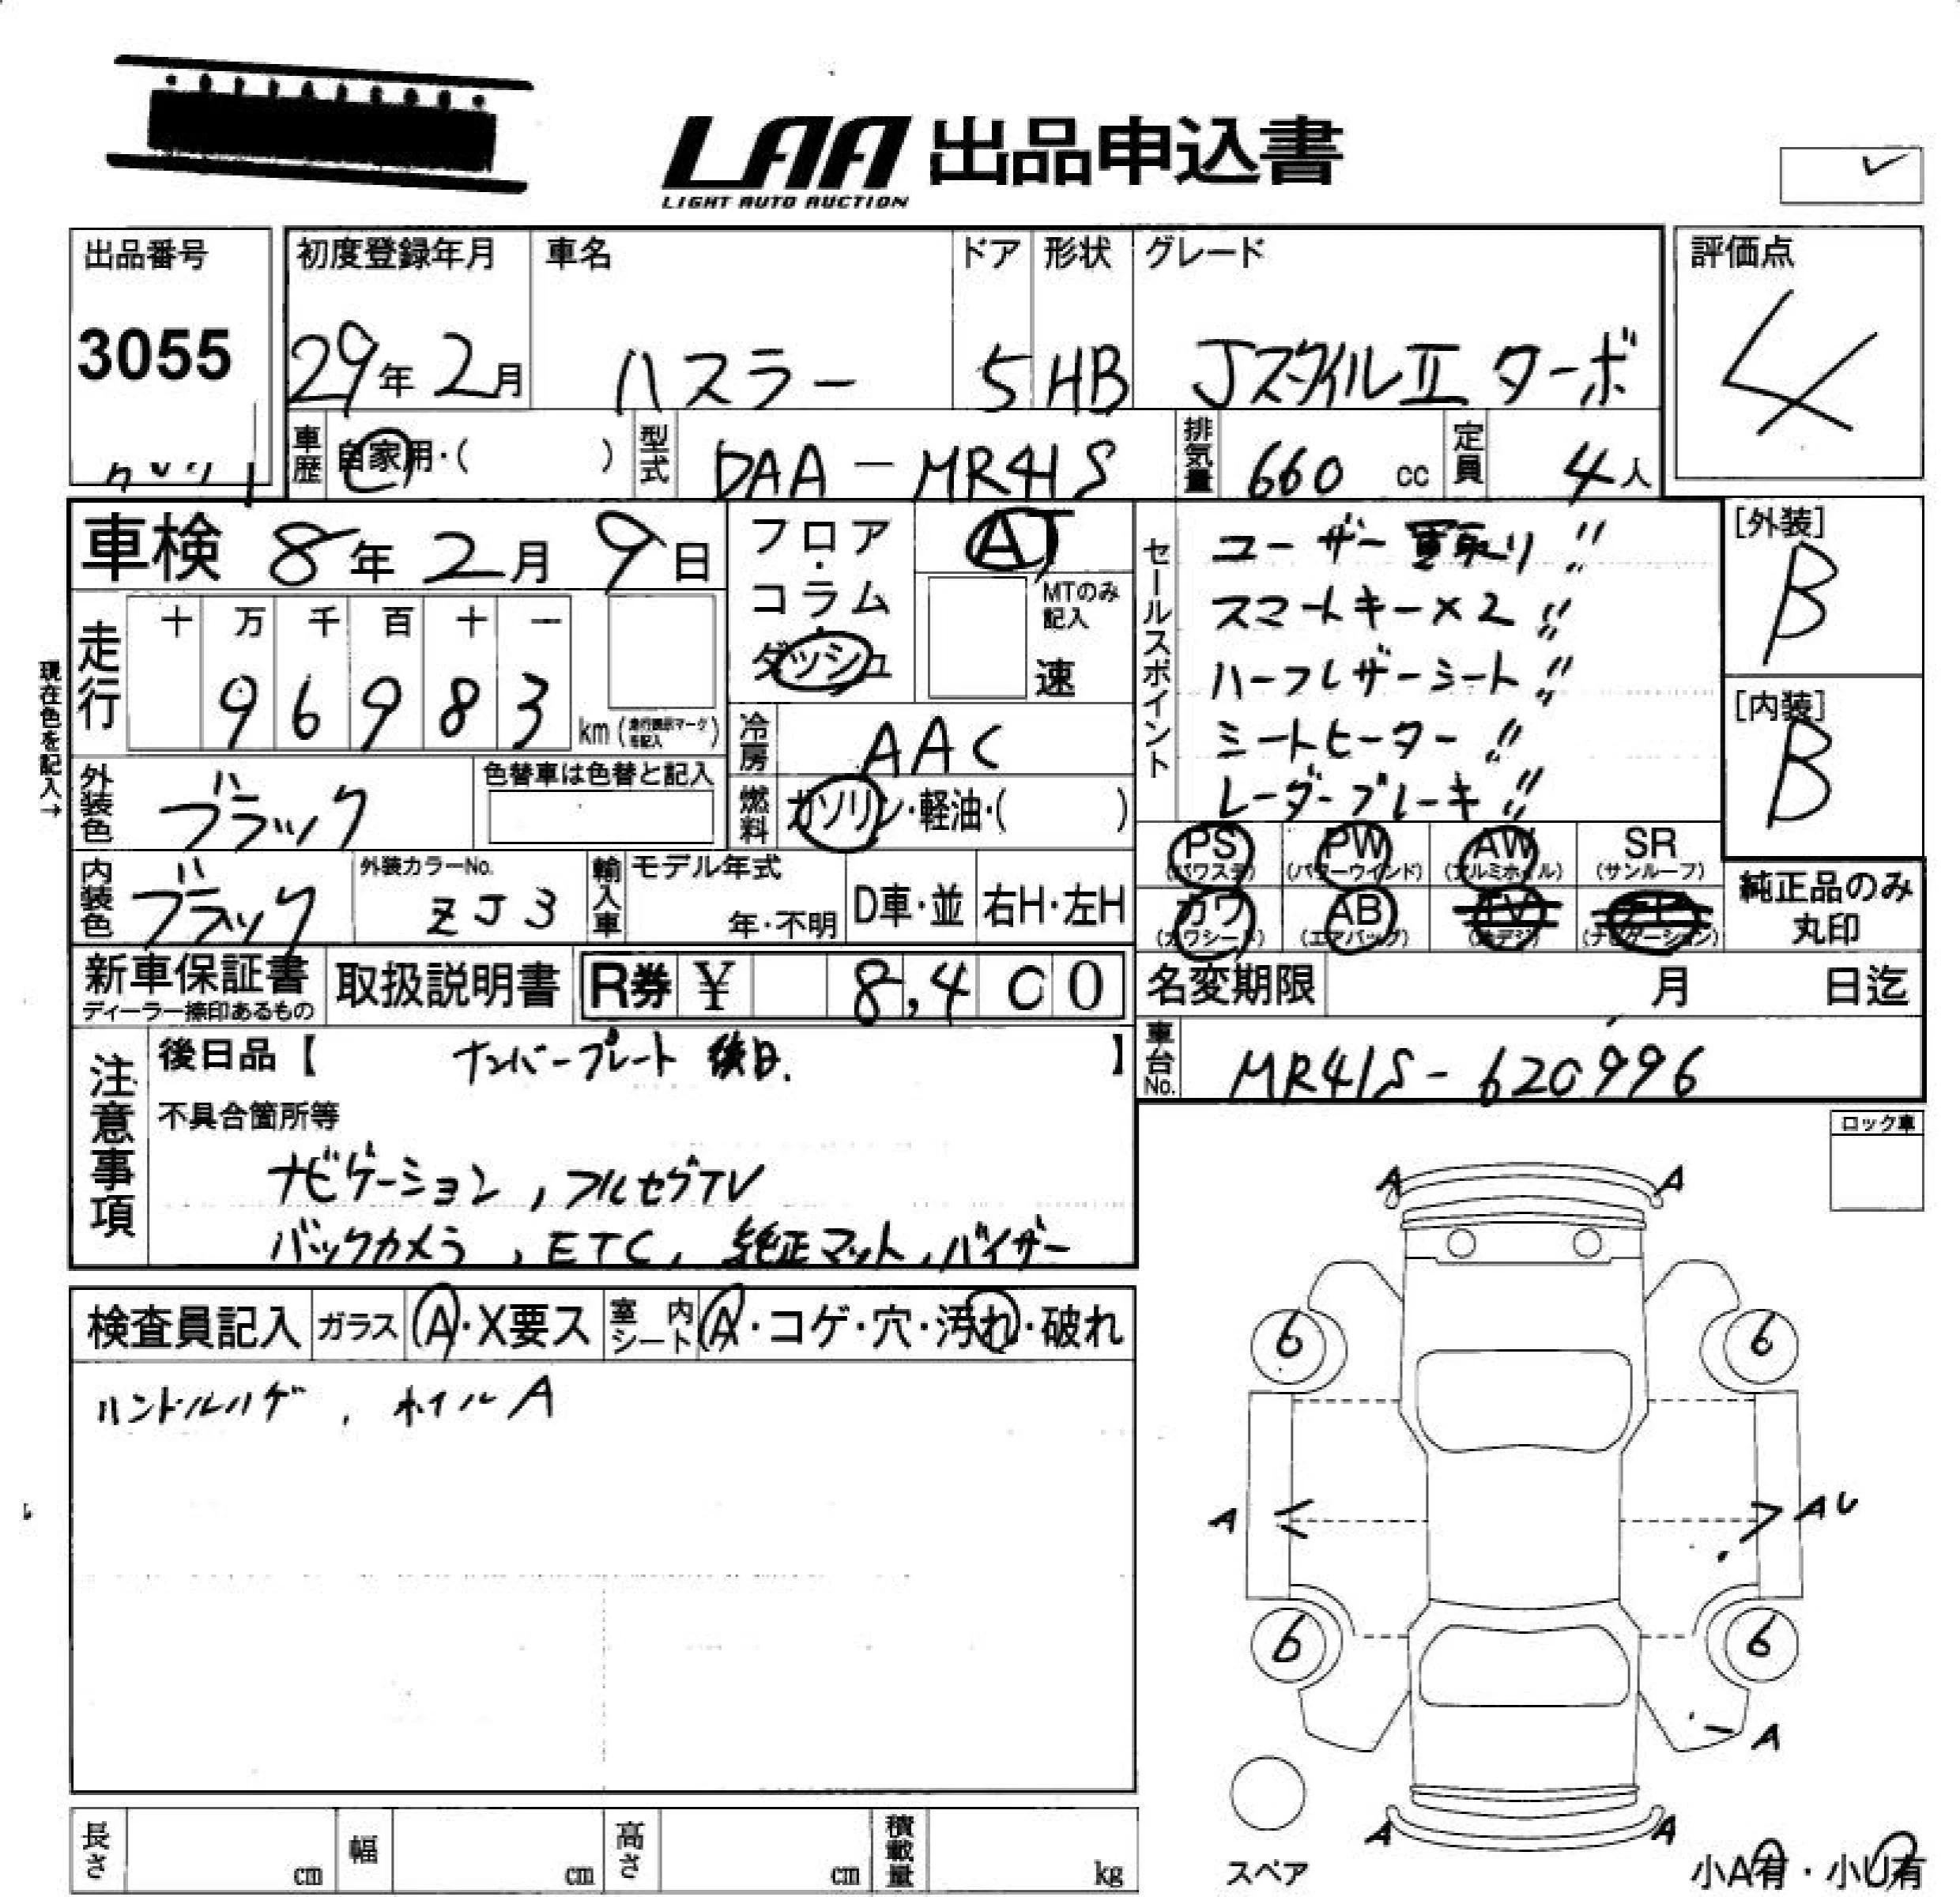 LAA 出品申込書
LIGHT AUTO AUCTION
出品番号
3055
初度登録年月
29年2月
車名
ハスラー
ドア
5
形状
HB
グレード
JスタイルⅡ ターボ
評価点
4
車歴
自家用・( )
型式
DAA-MR41S
排気量
660 cc
定員
4人
車検 8年2月9日
フロア・コラム・ダッシュ
AT
MTのみ記入
速
セールスポイント
ユーザー買取り!!
スマートキー×2!!
ハーフレザーシート!!
シートヒーター!!
レーダーブレーキ!!
[外装]
B
[内装]
B
現在色を記入→
走行
十 万 千 百 十 一
9 6 9 8 3 km
冷房
AAC
燃料
ガソリン・軽油・( )
外装色
ブラック
色替車は色替と記入
内装色
ブラック
外装カラーNo.
ZJ3
輸入車
モデル年式
年・不明
D車・並
右H・左H
PS (パワステ)
PW (パワーウインド)
AW (アルミホイル)
SR (サンルーフ)
カワ (カワシート)
AB (エアバッグ)
純正品のみ丸印
新車保証書
ディーラー捺印あるもの
取扱説明書
R券 ¥ 8,400
名変期限 月 日迄
車台No.
MR41S-620996
注意事項
後日品【 ナンバープレート 後日. 】
不具合箇所等
ナビゲーション, フルセグTV
バックカメラ, ETC, 純正マット, バイザー
ロック車
検査員記入
ガラス
A・X要ス
室内シート
A・コゲ・穴・汚れ・破れ
ハンドルハゲ, ホイルA
A A
6 6
A AU
6 6
A
A A
スペア
小A有・小U有
長さ cm
幅 cm
高さ cm
積載量 kg